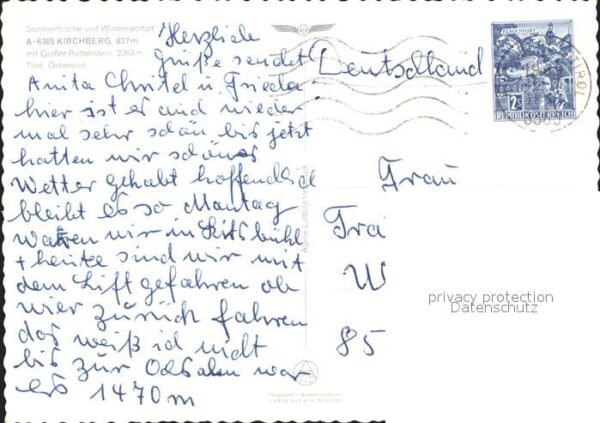 Sommerfrische und Wintersportort
A-6365 KIRCHBERG, 837 m
mit Großer Rettenstein, 2363 m
Tirol, Österreich
Herzliche
Grüße sendet
Anita Christel u Frieda
hier ist es mid wieder
mal sehr schön bis jetzt
hatten wir schönes
Wetter gehabt hoffendlich
bleibt es so Montag
waren wir in Kitzbühl
+ heute sind wir mit
dem Lift gefahren ob
wier zürück fahren
das weiß ich nicht
bis zur Ochsalm war
es 1470 m
Deutschland
Frau
Tra
W
85
KLAGENFURT
2S
REPUBLIK ÖSTERREICH
TIROL
privacy protection
Datenschutz